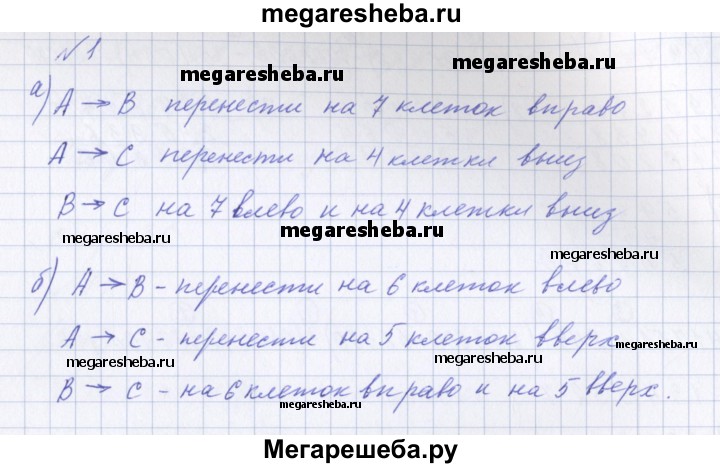 megaresheba.ru
№ 1
megaresheba.ru
megaresheba.ru
а) А → В перенести на 7 клеток вправо
А → С перенести на 4 клетки вниз
В → С на 7 влево и на 4 клетки вниз
megaresheba.ru
megaresheba.ru
б) А → В - перенести на 6 клеток влево
А → С - перенести на 5 клеток вверх
megaresheba.ru
megaresheba.ru
megaresheba.ru
В → С - на 6 клеток вправо и на 5 вверх.
megaresheba.ru
Мегарешеба.ру